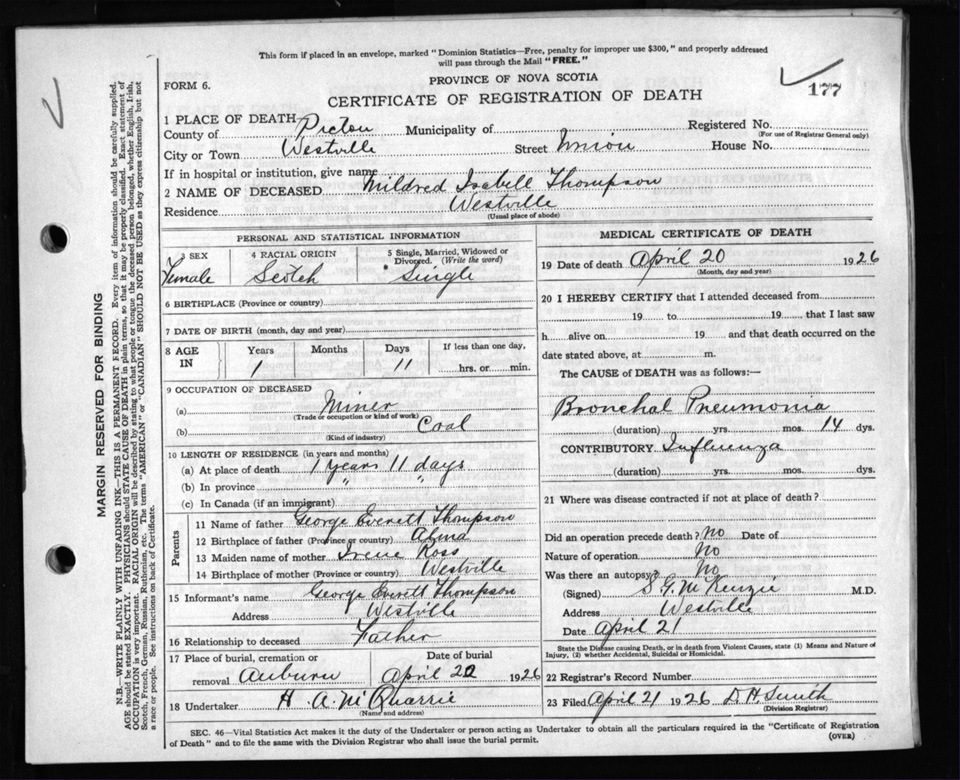 This form if placed in an envelope, marked "Dominion Statistics—Free, penalty for improper use $300," and properly addressed
will pass through the Mail "FREE."
PROVINCE OF NOVA SCOTIA
FORM 6.
CERTIFICATE OF REGISTRATION OF DEATH
177
1 PLACE OF DEATH
County of Pictou Municipality of Registered No.
(For use of Registrar General only)
City or Town Westville Street Union House No.
If in hospital or institution, give name
2 NAME OF DECEASED Mildred Isabell Thompson
Residence Westville
(Usual place of abode)
PERSONAL AND STATISTICAL INFORMATION
3 SEX 4 RACIAL ORIGIN 5 Single, Married, Widowed or
Divorced. (Write the word)
Female Scotch Single
6 BIRTHPLACE (Province or country)
7 DATE OF BIRTH (month, day and year)
8 AGE IN Years Months Days If less than one day,
1 11 hrs. or min.
9 OCCUPATION OF DECEASED
(a) Miner
(Trade or occupation or kind of work)
(b) Coal
(Kind of industry)
10 LENGTH OF RESIDENCE (in years and months)
(a) At place of death 1 years 11 days
(b) In province " "
(c) In Canada (if an immigrant)
Parents
11 Name of father George Everett Thompson
12 Birthplace of father (Province or country) Alma
13 Maiden name of mother Irene Ross
14 Birthplace of mother (Province or country) Westville
15 Informant's name George Everett Thompson
Address Westville
16 Relationship to deceased Father
17 Place of burial, cremation or Date of burial
removal Auburn April 22 1926
18 Undertaker H. A. McQuarrie
(Name and address)
MEDICAL CERTIFICATE OF DEATH
19 Date of death April 20 1926
(Month, day and year)
20 I HEREBY CERTIFY that I attended deceased from
19 to 19 , that I last saw
h alive on 19 and that death occurred on the
date stated above, at m.
The CAUSE of DEATH was as follows:—
Bronchal Pneumonia
(duration) yrs. mos. 14 dys.
CONTRIBUTORY Influenza
(duration) yrs. mos. dys.
21 Where was disease contracted if not at place of death?
Did an operation precede death? No Date of
Nature of operation No
Was there an autopsy? No
(Signed) S. G. McKenzie M.D.
Address Westville
Date April 21
State the Disease causing Death, or in death from Violent Causes, state (1) Means and Nature of
Injury, (2) whether Accidental, Suicidal or Homicidal.
22 Registrar's Record Number
23 Filed April 21 1926 D. H. Smith
(Division Registrar)
SEC. 46—Vital Statistics Act makes it the duty of the Undertaker or person acting as Undertaker to obtain all the particulars required in the "Certificate of Registration
of Death" and to file the same with the Division Registrar who shall issue the burial permit.
(OVER)
MARGIN RESERVED FOR BINDING
N.B.—WRITE PLAINLY WITH UNFADING INK—THIS IS A PERMANENT RECORD. Every item of information should be carefully supplied.
AGE should be stated EXACTLY. PHYSICIANS should STATE CAUSE OF DEATH in plain terms, so that it may be properly classified. Exact statement of
OCCUPATION is very important. RACIAL ORIGIN will be described by stating to what people or tongue the deceased person belonged, whether English, Irish,
Scotch, French, German, Russian, Ruthenian, etc. The terms "AMERICAN" or "CANADIAN" SHOULD NOT BE USED as they express citizenship but not
a race or people. See instructions on back of Certificate.